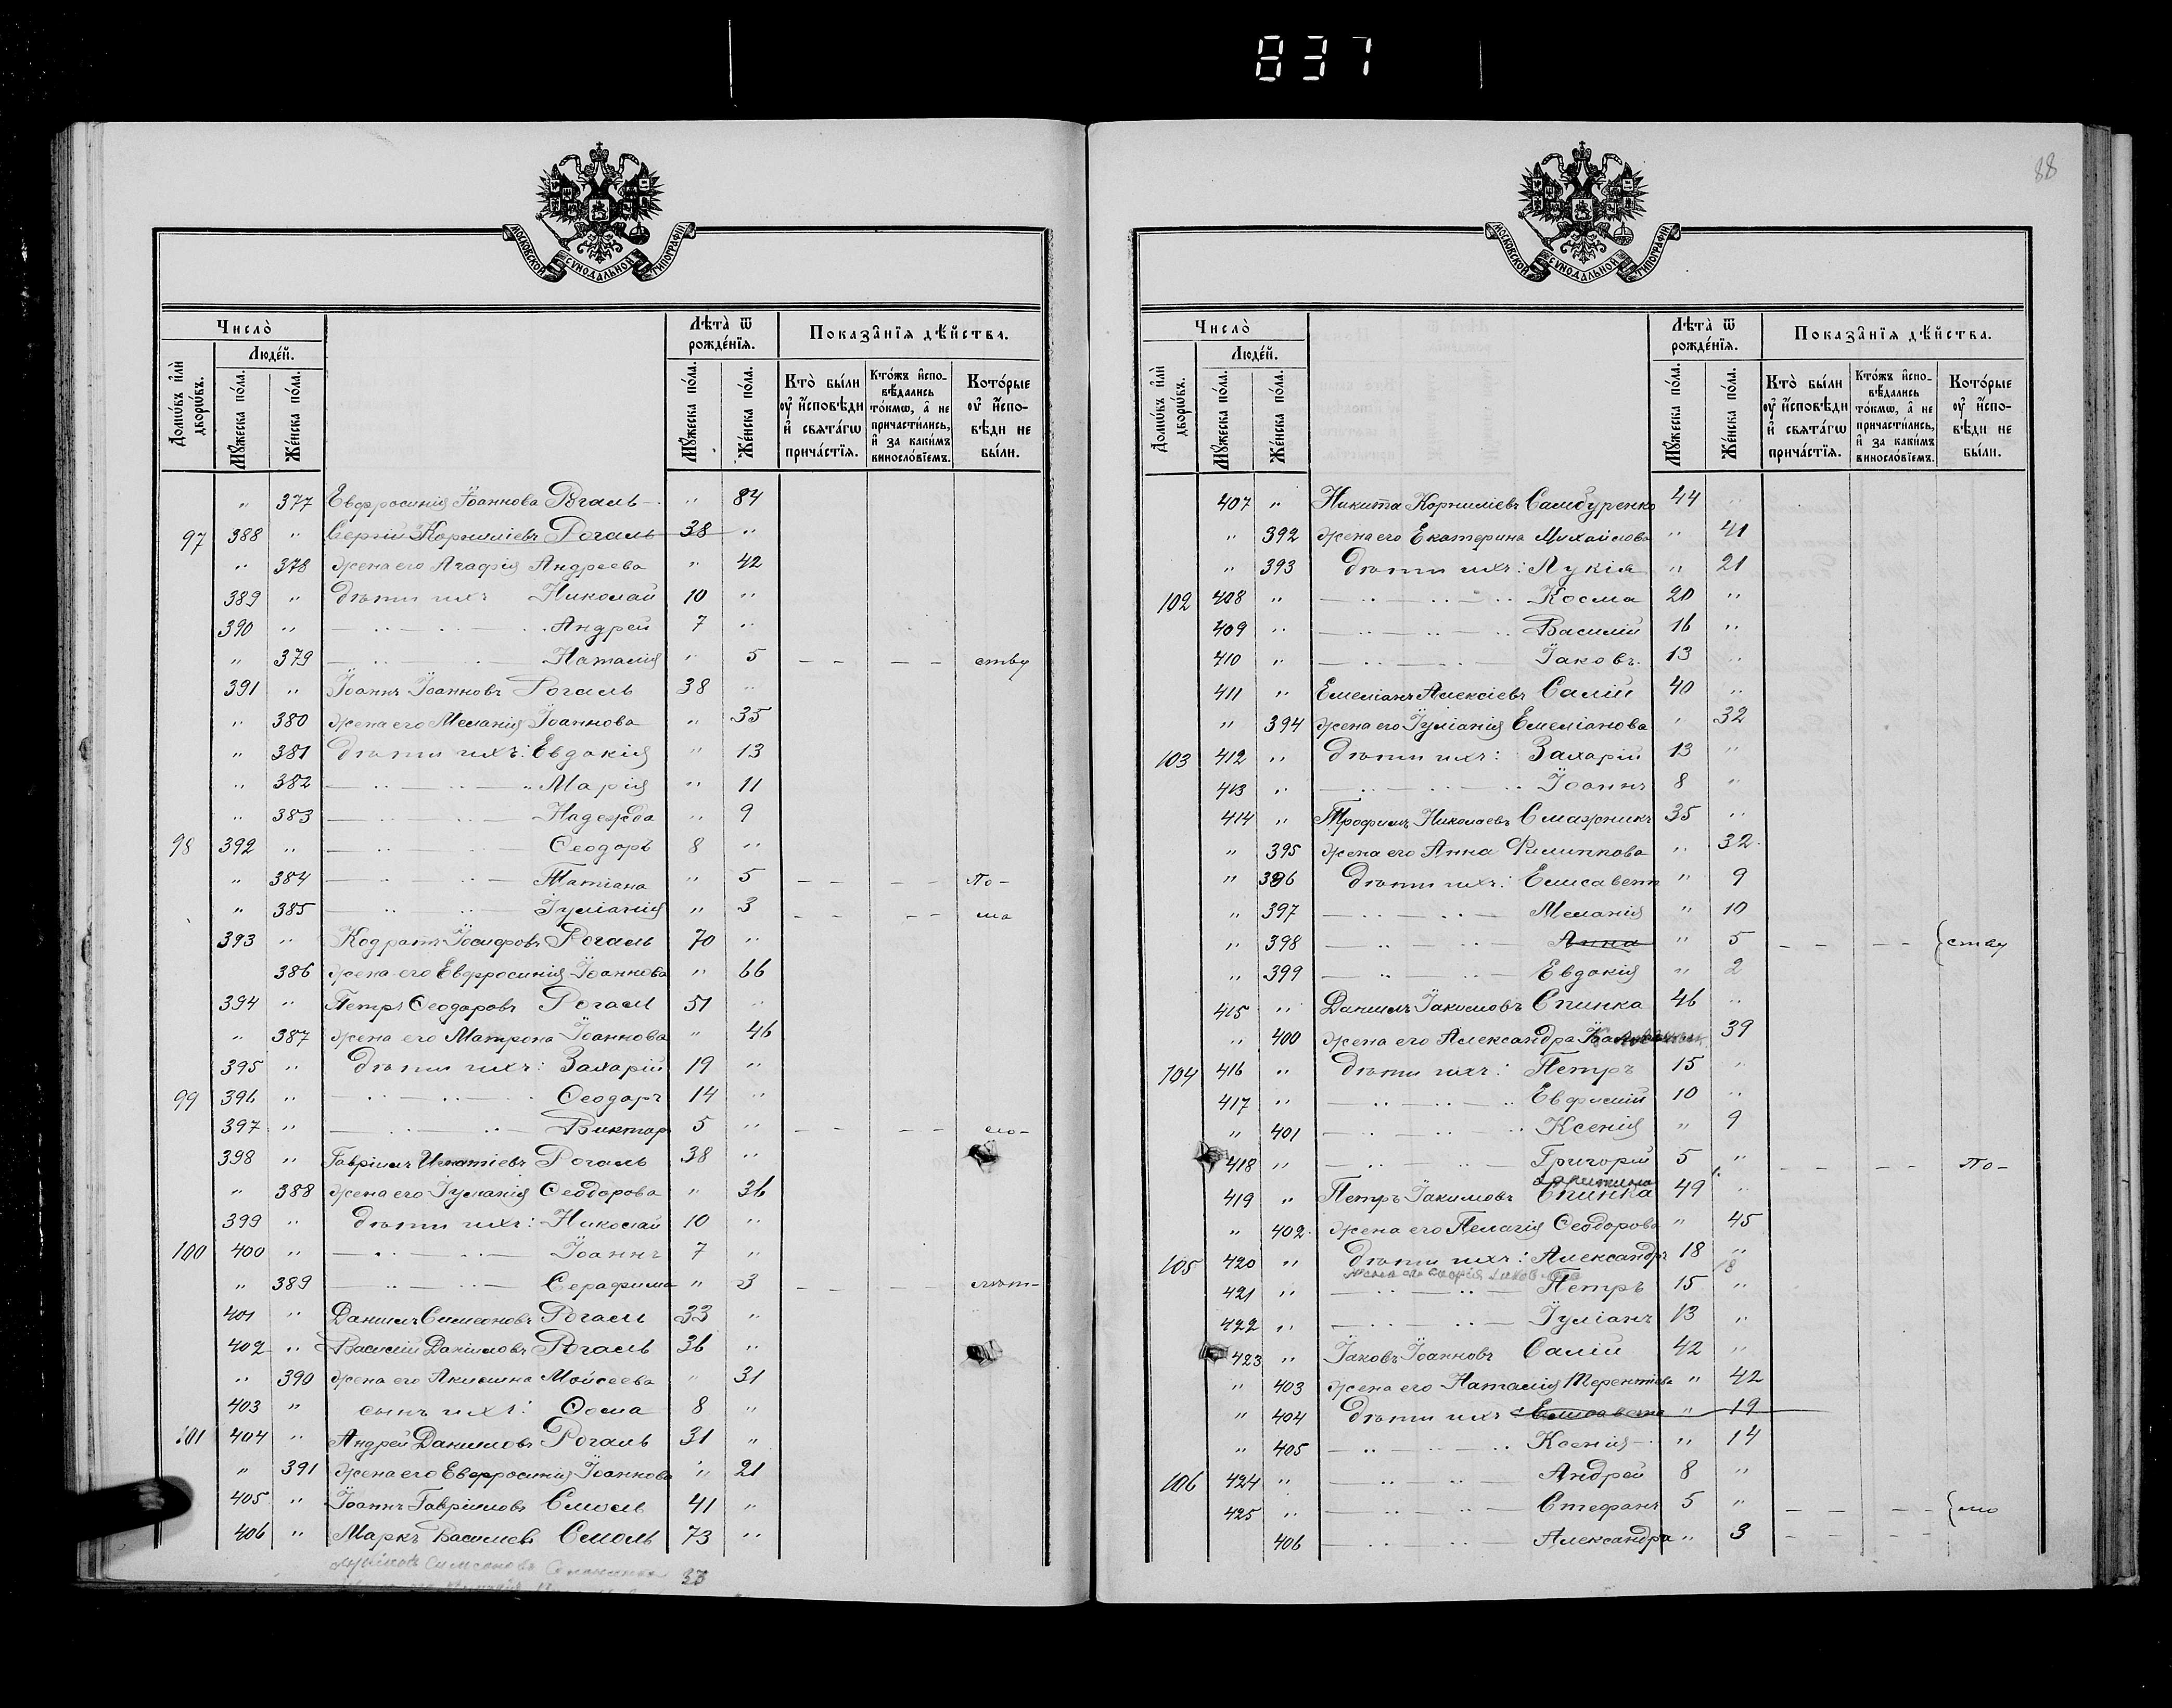 837
88
МОСКОВСКОЙ СУНОДАЛЬНОЙ ТИПОГРАФІИ
Число̀
Люде́й.
Домѡ́въ и҆лѝ дворѡ́въ.
Мꙋ́жеска по́ла.
Же́нска по́ла.
Лѣта̀ ѿ рожде́нїѧ.
Мꙋ́жеска по́ла.
Же́нска по́ла.
Показа̑нїѧ дѣ́йства.
Кто̀ бы́ли оу҆ и҆́сповѣди и҆ свѧта́гѡ прича́стїѧ.
Кто́жъ и҆спо-вѣ́дались то́кмѡ, а҆ не причасти́лись, и҆ за каки́мъ винословїемъ.
Кото́рые оу҆ и҆́спо-вѣди не бы́ли.
" 377 Евфросинія Іоаннова Рогаль " 84
97 388 " Сергій Корниліевъ Рогаль 38 "
" 378 жена его Агафія Андреева " 42
389 " Дѣти ихъ Николай 10 "
390 " Андрей 7 "
" 379 Наталія " 5 - - - - ству
391 " Іоаннъ Іоанновъ Рогаль 38 "
" 380 жена его Меланія Іоаннова " 35
" 381 Дѣти ихъ: Евдокія " 13
" 382 Марія " 11
" 383 Надежда " 9
98 392 " Ѳеодоръ 8 "
" 384 Татіана " 5 - - - - По-
" 385 Іуліанія " 3 - - - - ма
393 " Кодратъ Іосифовъ Рогаль 70 "
386 жена его Евфросинія Іоаннова " 66
394 " Петръ Ѳеодоровъ Рогаль 51 "
" 387 жена его Матрона Іоаннова " 46
395 " Дѣти ихъ: Захарій 19 "
99 396 " Ѳеодоръ 14 "
397 " Викторъ 5 " - - - - ло-
398 " Гавріилъ Игнатіевъ Рогаль 38 "
" 388 жена его Іуліанія Ѳеодорова " 36
399 " Дѣти ихъ: Николай 10 "
100 400 " Іоаннъ 7 "
" 389 Серафима " 3 - - - лѣт-
401 " Даніилъ Симеоновъ Рогаль 33 "
402 " Василій Даніиловъ Рогаль 36 "
" 390 жена его Акилина Мойсеева " 31
403 " сынъ ихъ: Ѳома 8 "
101 404 " Андрей Даніиловъ Рогаль 31 "
" 391 жена его Евфросинія Іоаннова " 21
405 " Іоаннъ Гавріиловъ Смоль 41 "
406 " Маркъ Васильевъ Смоль 73 "
33
МОСКОВСКОЙ СУНОДАЛЬНОЙ ТИПОГРАФІИ
Число̀
Люде́й.
Домѡ́въ и҆лѝ дворѡ́въ.
Мꙋ́жеска по́ла.
Же́нска по́ла.
Лѣта̀ ѿ рожде́нїѧ.
Мꙋ́жеска по́ла.
Же́нска по́ла.
Показа̑нїѧ дѣ́йства.
Кто̀ бы́ли оу҆ и҆́сповѣди и҆ свѧта́гѡ прича́стїѧ.
Кто́жъ и҆спо-вѣ́дались то́кмѡ, а҆ не причасти́лись, и҆ за каки́мъ винословїемъ.
Кото́рые оу҆ и҆́спо-вѣди не бы́ли.
407 " Никита Корниліевъ Самбуренко 44 "
" 392 жена его Екатерина Михайлова " 41
" 393 Дѣти ихъ: Лукія " 21
102 408 " Косма 20 "
409 " Василій 16 "
410 " Іаковъ. 13 "
411 " Емеліанъ Алексіевъ Салій 40 "
" 394 жена его Іуліанія Емеліанова " 32
103 412 " Дѣти ихъ: Захарій 13 "
413 " Іоаннъ 8 "
414 " Трофимъ Николаевъ Смажникъ 35 "
" 395 жена его Анна Филиппова " 32
" 396 Дѣти ихъ: Елисавета " 9
" 397 Меланія " 10
" 398 Анна " 5 - - - - {ству
" 399 Евдокія " 2
415 " Даніилъ Іакимовъ Спинка 46 "
" 400 жена его Александра 39
104 416 " Дѣти ихъ: Петръ 15 "
417 " Евфимій 10 "
" 401 Ксенія " 9
418 " Григорій 5 " - - - - По-
419 " Петръ Іакимовъ Спинка 49 "
" 402 жена его Пелагія Ѳеодорова " 45
105 420 " Дѣти ихъ: Александръ 18 "
18
421 " Петръ 15 "
422 " Іуліанъ 13 "
423 " Іаковъ Іоанновъ Салій 42 "
" 403 жена его Наталія Терентіева " 42
" 404 Дѣти ихъ Елисавета " 19
" 405 Ксенія " 14
106 424 " Андрей 8 "
425 " Стефанъ 5 " - - - - {мо
406 Александра " 3 - - - -